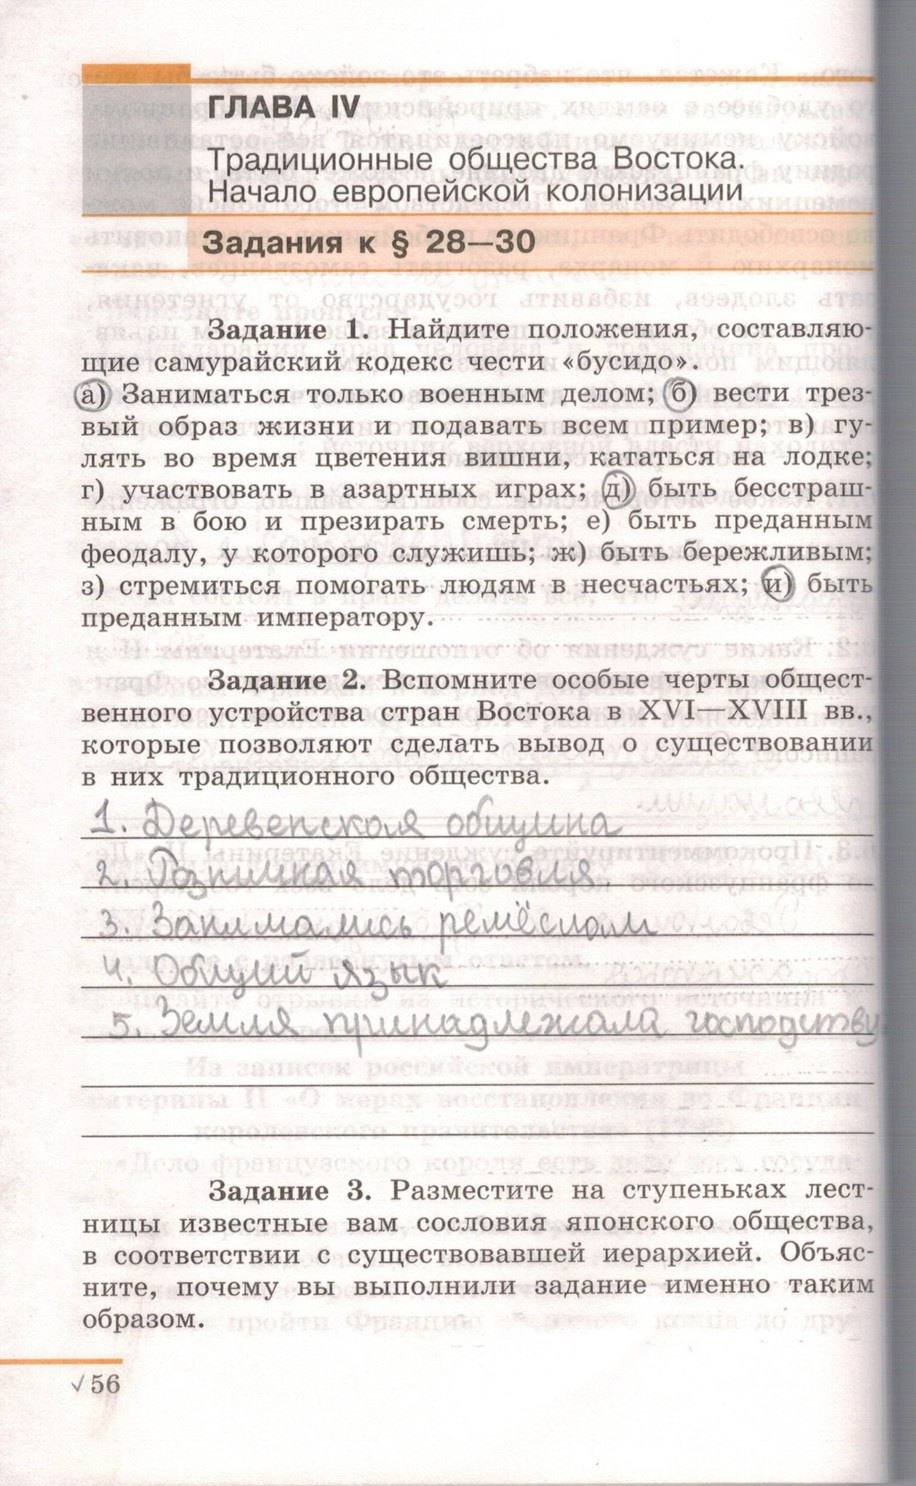 ГЛАВА IV
Традиционные общества Востока.
Начало европейской колонизации
Задания к § 28—30
Задание 1. Найдите положения, составляю-
щие самурайский кодекс чести «бусидо».
а) Заниматься только военным делом; б) вести трез-
вый образ жизни и подавать всем пример; в) гу-
лять во время цветения вишни, кататься на лодке;
г) участвовать в азартных играх; д) быть бесстраш-
ным в бою и презирать смерть; е) быть преданным
феодалу, у которого служишь; ж) быть бережливым;
з) стремиться помогать людям в несчастьях; и) быть
преданным императору.
Задание 2. Вспомните особые черты общест-
венного устройства стран Востока в XVI—XVIII вв.,
которые позволяют сделать вывод о существовании
в них традиционного общества.
1. Деревенская община
2. Розничная торговля
3. Занимались ремёслам
4. Общий язык
5. Земля принадлежала господству.
Задание 3. Разместите на ступеньках лест-
ницы известные вам сословия японского общества,
в соответствии с существовавшей иерархией. Объяс-
ните, почему вы выполнили задание именно таким
образом.
√ 56